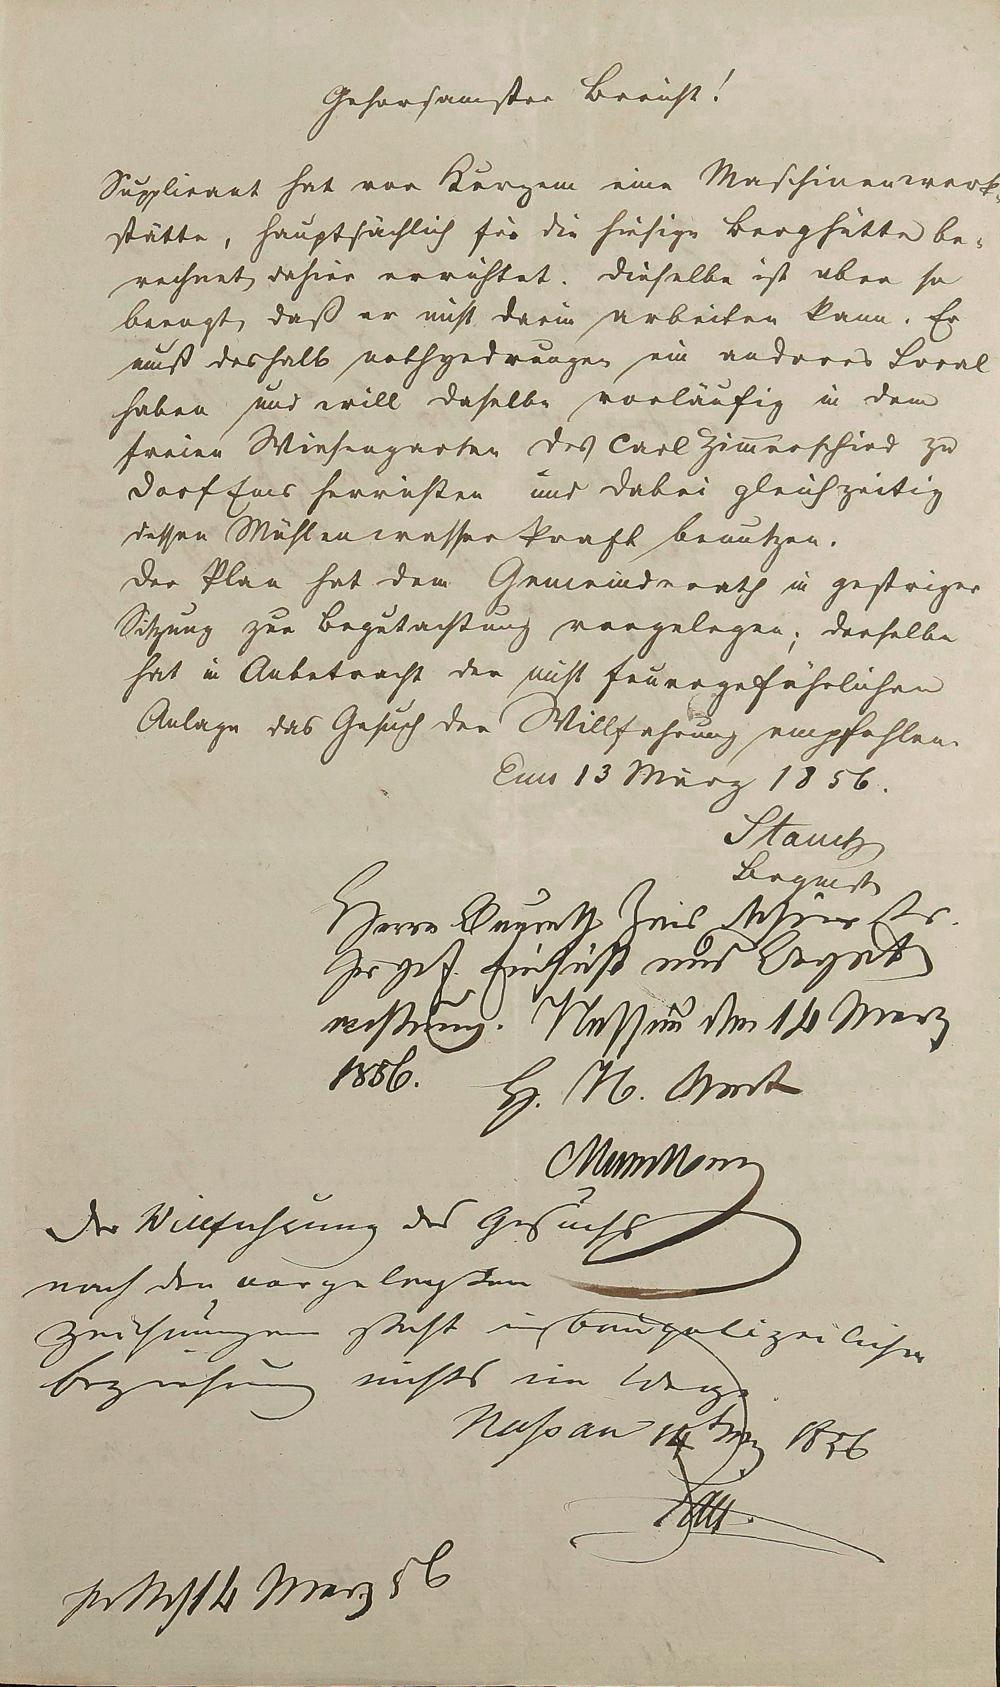 Gehorsamster Bericht!
Supplicant hat vor Kurzem eine Maschinenwerk-
stätte, hauptsächlich für die hiesige Berghütte be-
rechnet, dahier errichtet. Dieselbe ist aber so
beengt, daß er nicht darin arbeiten kann. Er
muß deshalb nothgedrungen ein anderes Local
haben und will daselbe vorläufig in dem
freien Wiesengarten des Carl Zimerschied zu
Dorf Ems herrichten und dabei gleichzeitig
dessen Mühlenwasserkraft benutzen.
Der Plan hat dem Gemeinderath in gestriger
Sitzung zur Begutachtung vorgelegen; derselbe
hat in Anbetracht der nicht feuergefährlichen
Anlage das Gesuch der Willfahrung empfohlen.
Ems 13 März 1856.
Herrn Baurath
gef. Einsicht und
Nassau den 14 Merz
1856. H. N. Amt
Der Willfahrung des Gesuchs
nach den vorgelegten
Zeichnungen steht in baupolizeilicher
Beziehung nichts im Wege.
Nassau 14 März 1856
14 Merz 56